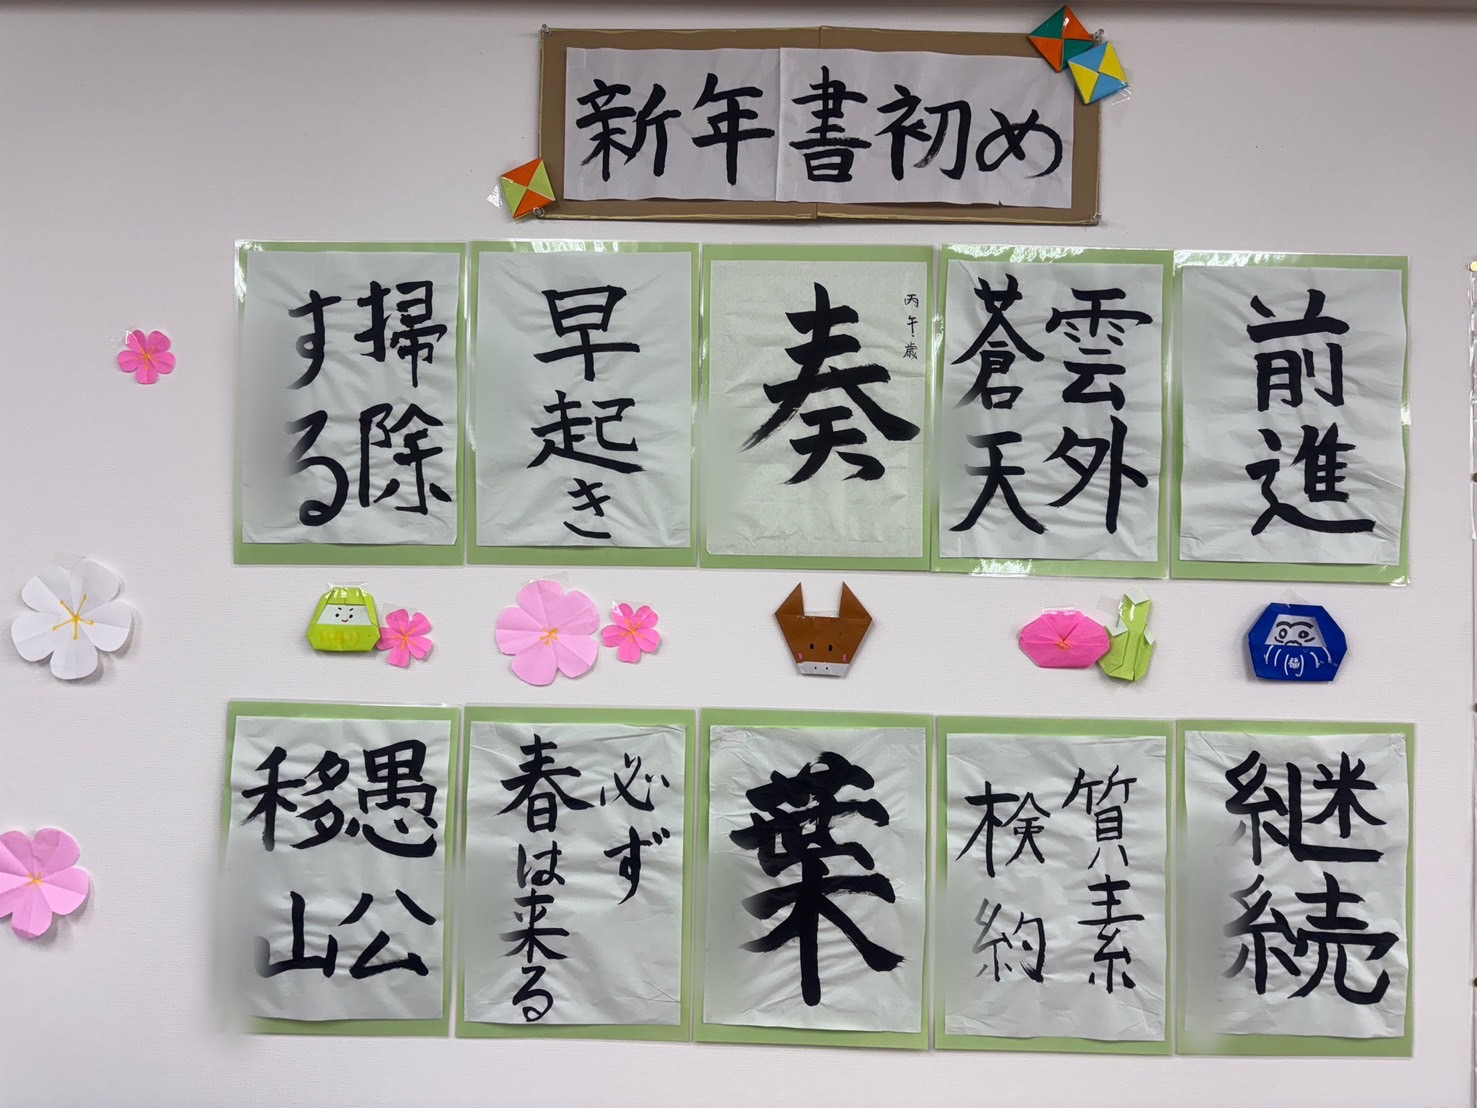 新年書初め
前進
雲外
蒼天
丙午歳
奏
早起き
掃除
する
継続
質素
検約
葉
必ず
春は来る
愚公
移山